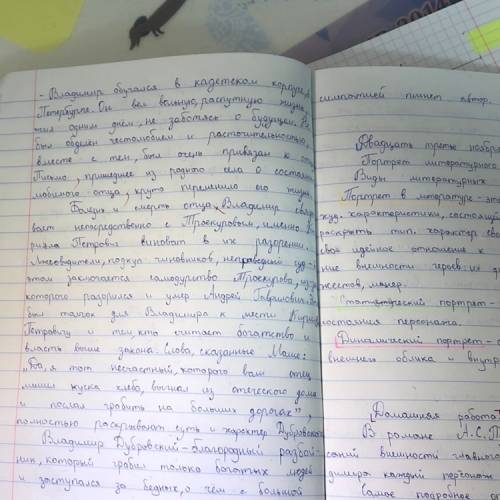 - Владимир обучался в кадетском корпусе в
Петербурге. Он вел вольную, распутную жизнь,
жил одним днем, не заботясь о будущем.
был обделен честолюбием и расточительностью
вместе с тем, был очень привязан к
Письмо, пришедшее из родного села о состоянии
любимого отца, круто переменило его жизнь.
Болезнь и смерть отца Владимир
вает непосредственно с Троекуровым, именно
рилла Петрович виноват в их разорении.
Лжесвидетели, подкуп чиновников, неправедный суд
этом заключается самодурство Троекурова, из-за
которого разорился и умер Андрей Гаврилович.
был толчок для Владимира к мести Кириле
Петровичу и тем, кто считает богатство и
власть выше закона. Слова, сказанные Маше:
"Да, я тот несчастный, которого ваш отец
лишил куска хлеба, выгнал из отеческого дома
и послал грабить на больших дорогах",
полностью раскрывают суть и характер Дубровского.
Владимир Дубровский - благородный разбой-
ник, который грабил только богатых людей
и заступался за бедных, о чем с большой
симпатией пишет автор.
Двадцать третье ноября
Портрет литературного
Виды литературных
Портрет в литературе - это
худ. характеристики, состоящ
раскрыть тип. характер сво
своё идейное отношение к
ние внешности героев: их
жестов, манер.
Статистический портрет -
стояния персонажа.
Динамический портрет -
внешнего облика и внутр
Домашняя работа
В романе А.С.П
сании внешности главного
димира каждый персонаж
Самое подробное